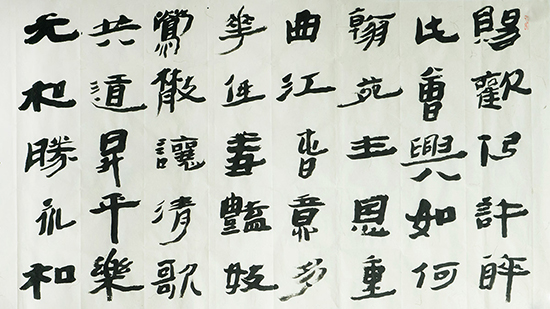 賜歡仍許醉
此會興如何
翰苑主恩重
曲江春意多
華低羞豔妓
鶯散讓清歌
共道昇平樂
元和勝永和